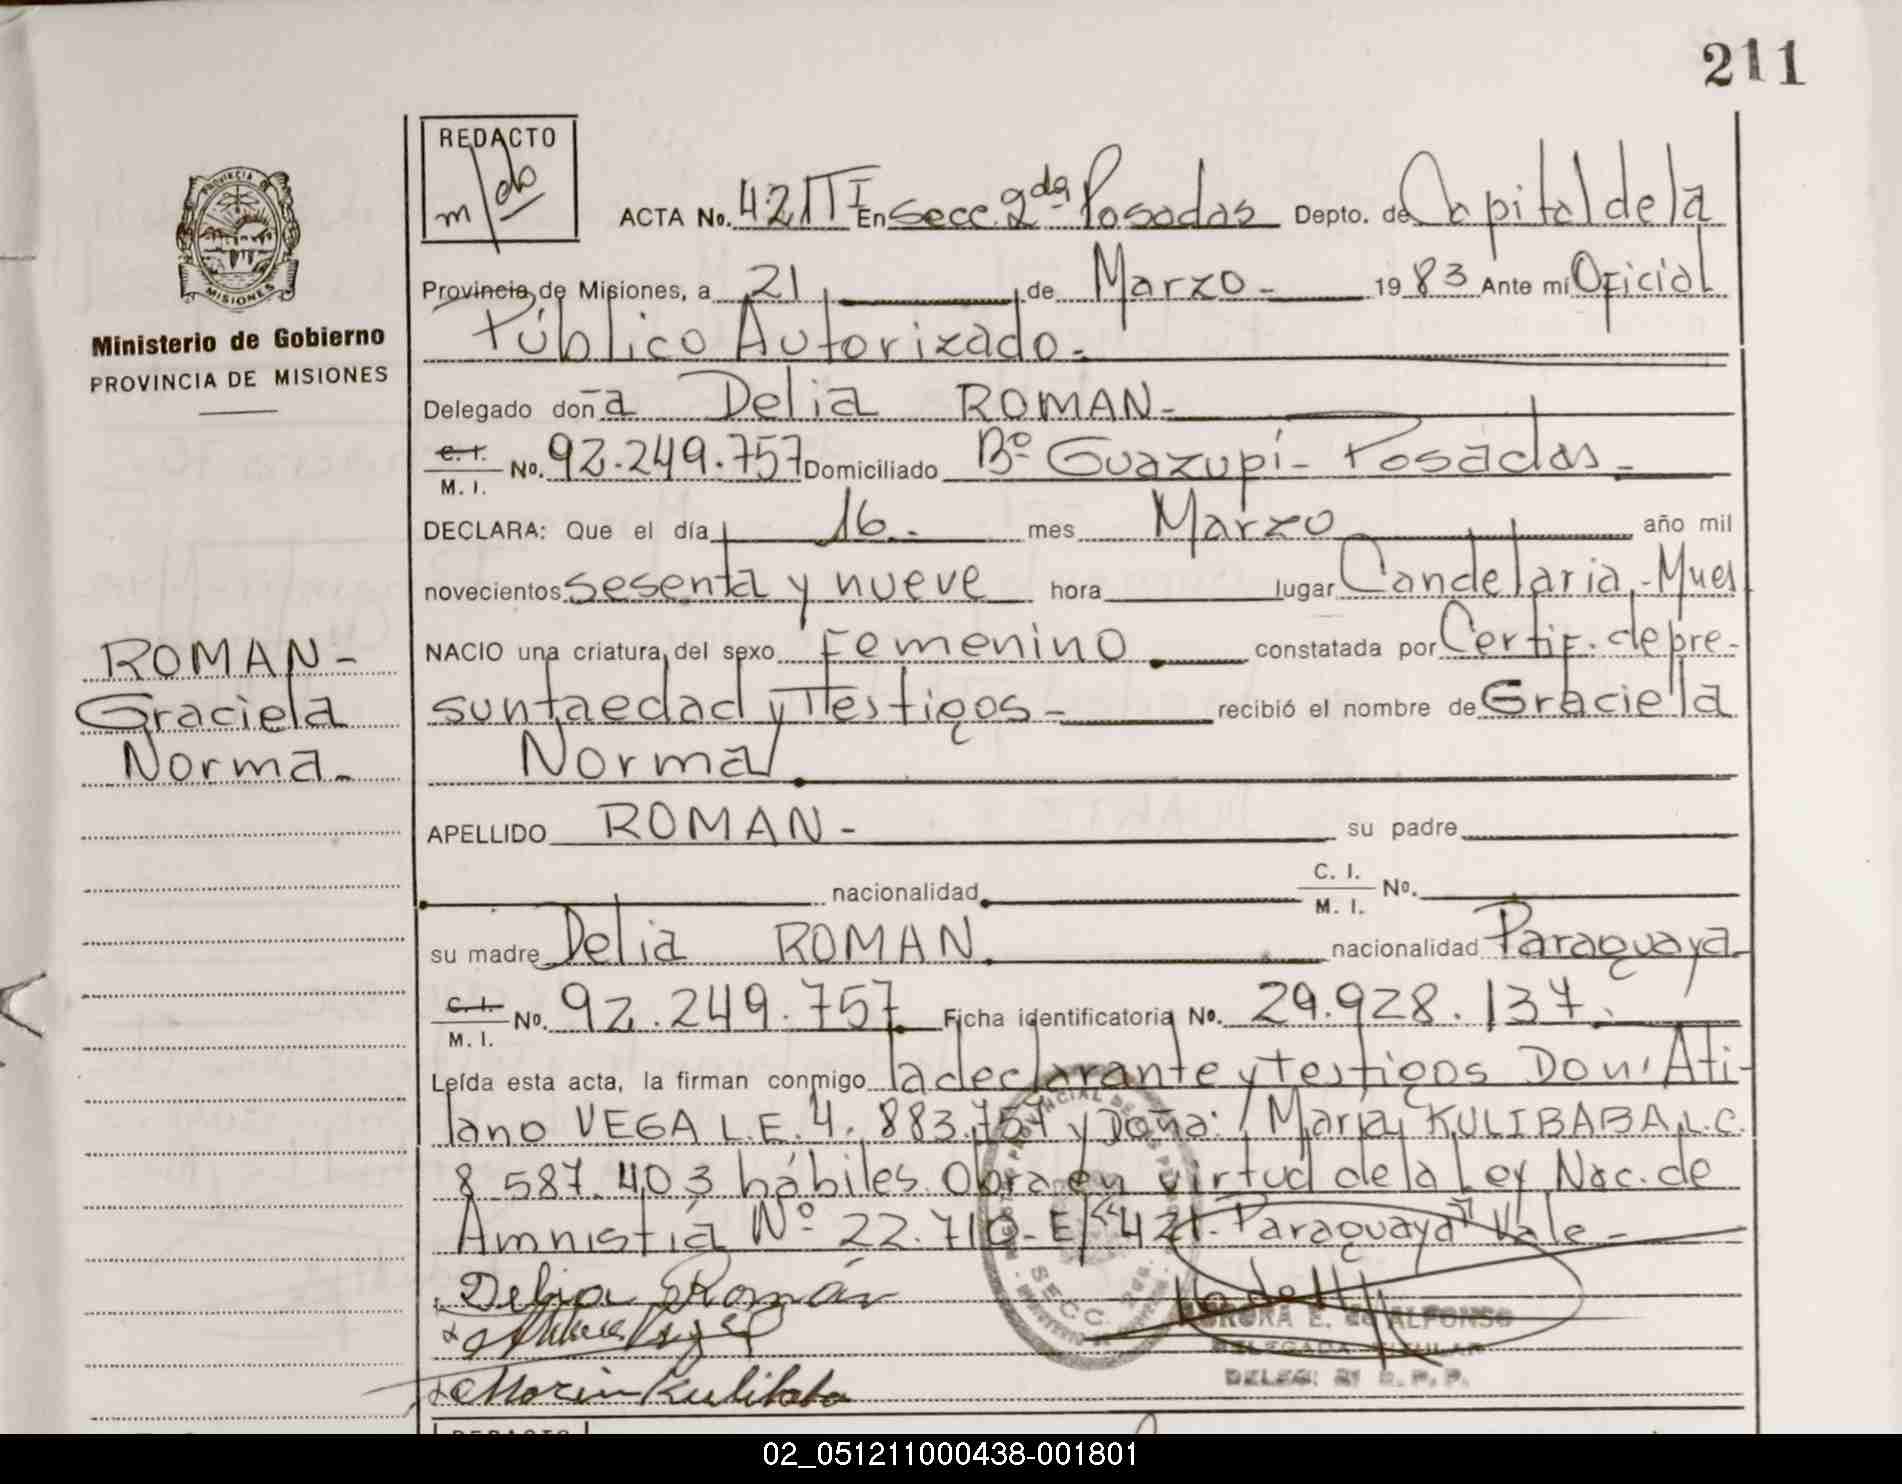 211
REDACTO
m/do
PROVINCIA DE
MISIONES
Ministerio de Gobierno
PROVINCIA DE MISIONES
ROMAN-
Graciela
Norma.-
ACTA No. 421 TI En Secc. 2da Posadas Depto. de Capital de la
Provincia de Misiones, a 21 de Marzo - 1983 Ante mí Oficial
Público Autorizado.-
Delegado donã Delia ROMAN-
C.I. M.I. No. 92.249.757 Domiciliado Bº Guazupí- Posadas-
DECLARA: Que el día 16.- mes Marzo año mil
novecientos sesenta y nueve hora lugar Candelaria,-Mnes
NACIO una criatura, del sexo Femenino constatada por Certif. de pre-
sunta edad y Testigos- recibió el nombre de Graciela
Norma
APELLIDO ROMAN- su padre
nacionalidad C. I. M. I. No.
su madre Delia ROMAN nacionalidad Paraguaya-
C.I. M. I. No. 92.249.757 Ficha identificatoria No. 29.928.137.
Leída esta acta, la firman conmigo la declarante y testigos Don: Ati-
lano VEGA L.E. 4.883.757 y Doña: María KULIBABA L.C.
8.587.403 hábiles. Obra en virtud de la Ley Nac. de
Amnistía Nº 22.710- E/"421- Paraguaya" Vale-
Delia Román
María Kulibaba
SECC.
AURORA E. de ALFONSO
DELEGADA TITULAR
DELEG: 2ª R. P. P.
REDACTO
02_051211000438-001801